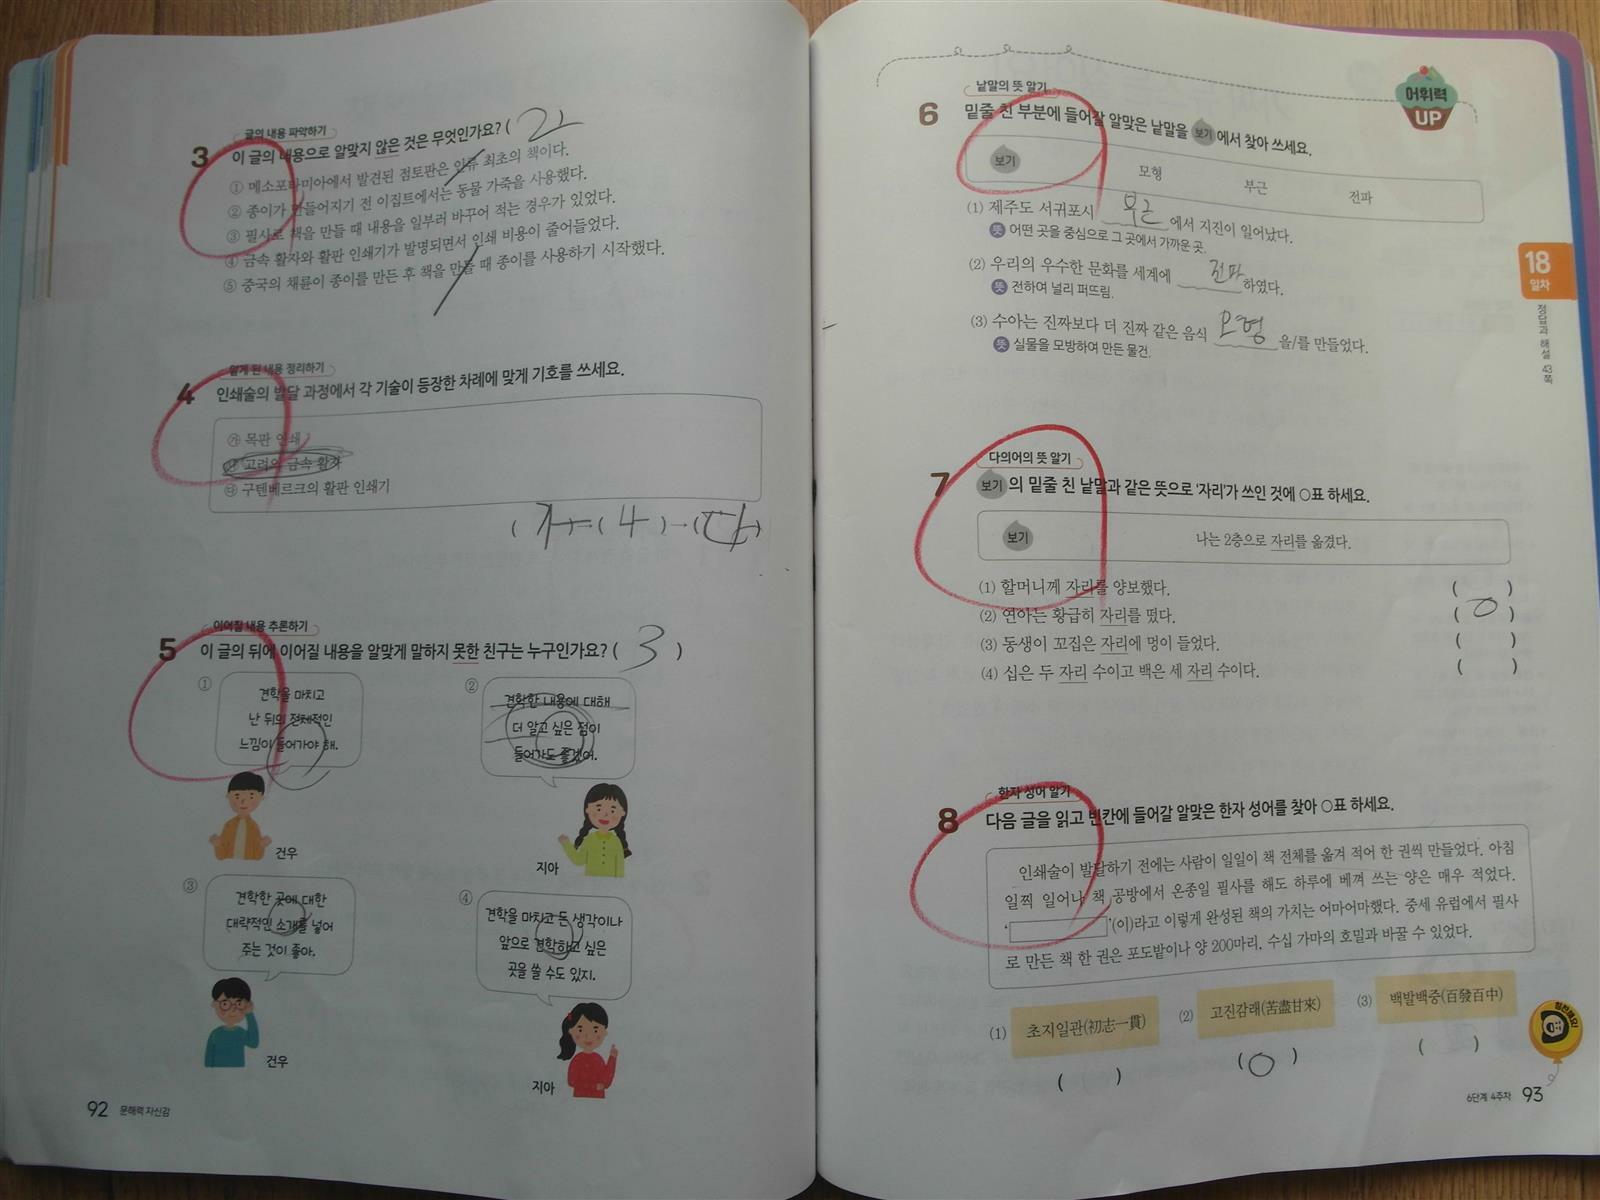 글의 내용 파악하기
3 이 글의 내용으로 알맞지 않은 것은 무엇인가요? ( 2
① 메소포타미아에서 발견된 점토판은 인류 최초의 책이다.
② 종이가 만들어지기 전 이집트에서는 동물 가죽을 사용했다.
③ 필사로 책을 만들 때 내용을 일부러 바꾸어 적는 경우가 있었다.
④ 금속 활자와 활판 인쇄기가 발명되면서 인쇄 비용이 줄어들었다.
⑤ 중국의 채륜이 종이를 만든 후 책을 만들 때 종이를 사용하기 시작했다.
알게 된 내용 정리하기
4 인쇄술의 발달 과정에서 각 기술이 등장한 차례에 맞게 기호를 쓰세요.
㉮ 목판 인쇄
㉯ 고려의 금속 활자
㉰ 구텐베르크의 활판 인쇄기
( 가 ) → ( 나 ) → ( 다 )
이어질 내용 추론하기
5 이 글의 뒤에 이어질 내용을 알맞게 말하지 못한 친구는 누구인가요? ( 3 )
①
견학을 마치고
난 뒤의 전체적인
느낌이 들어가야 해.
건우
②
견학한 내용에 대해
더 알고 싶은 점이
들어가도 좋겠어.
지아
③
견학한 곳에 대한
대략적인 소개를 넣어
주는 것이 좋아.
건우
④
견학을 마치고 든 생각이나
앞으로 견학하고 싶은
곳을 쓸 수도 있지.
지아
92 문해력 자신감
낱말의 뜻 알기
6 밑줄 친 부분에 들어갈 알맞은 낱말을 보기 에서 찾아 쓰세요.
어휘력
UP
보기 모형 부근 전파
(1) 제주도 서귀포시 부근 에서 지진이 일어났다.
뜻 어떤 곳을 중심으로 그 곳에서 가까운 곳.
(2) 우리의 우수한 문화를 세계에 전파 하였다.
뜻 전하여 널리 퍼뜨림.
(3) 수아는 진짜보다 더 진짜 같은 음식 모형 을/를 만들었다.
뜻 실물을 모방하여 만든 물건.
18
일차
정답과 해설 43쪽
다의어의 뜻 알기
7 보기 의 밑줄 친 낱말과 같은 뜻으로 '자리'가 쓰인 것에 ○표 하세요.
보기 나는 2층으로 자리를 옮겼다.
(1) 할머니께 자리를 양보했다. ( )
(2) 연아는 황급히 자리를 떴다. ( ○ )
(3) 동생이 꼬집은 자리에 멍이 들었다. ( )
(4) 십은 두 자리 수이고 백은 세 자리 수이다. ( )
한자 성어 알기
8 다음 글을 읽고 빈칸에 들어갈 알맞은 한자 성어를 찾아 ○표 하세요.
인쇄술이 발달하기 전에는 사람이 일일이 책 전체를 옮겨 적어 한 권씩 만들었다. 아침
일찍 일어나 책 공방에서 온종일 필사를 해도 하루에 베껴 쓰는 양은 매우 적었다.
' '(이)라고 이렇게 완성된 책의 가치는 어마어마했다. 중세 유럽에서 필사
로 만든 책 한 권은 포도밭이나 양 200마리, 수십 가마의 호밀과 바꿀 수 있었다.
(1) 초지일관(初志一貫) (2) 고진감래(苦盡甘來) (3) 백발백중(百發百中)
( ) ( ○ ) ( )
칭찬해요!
6단계 4주차 93